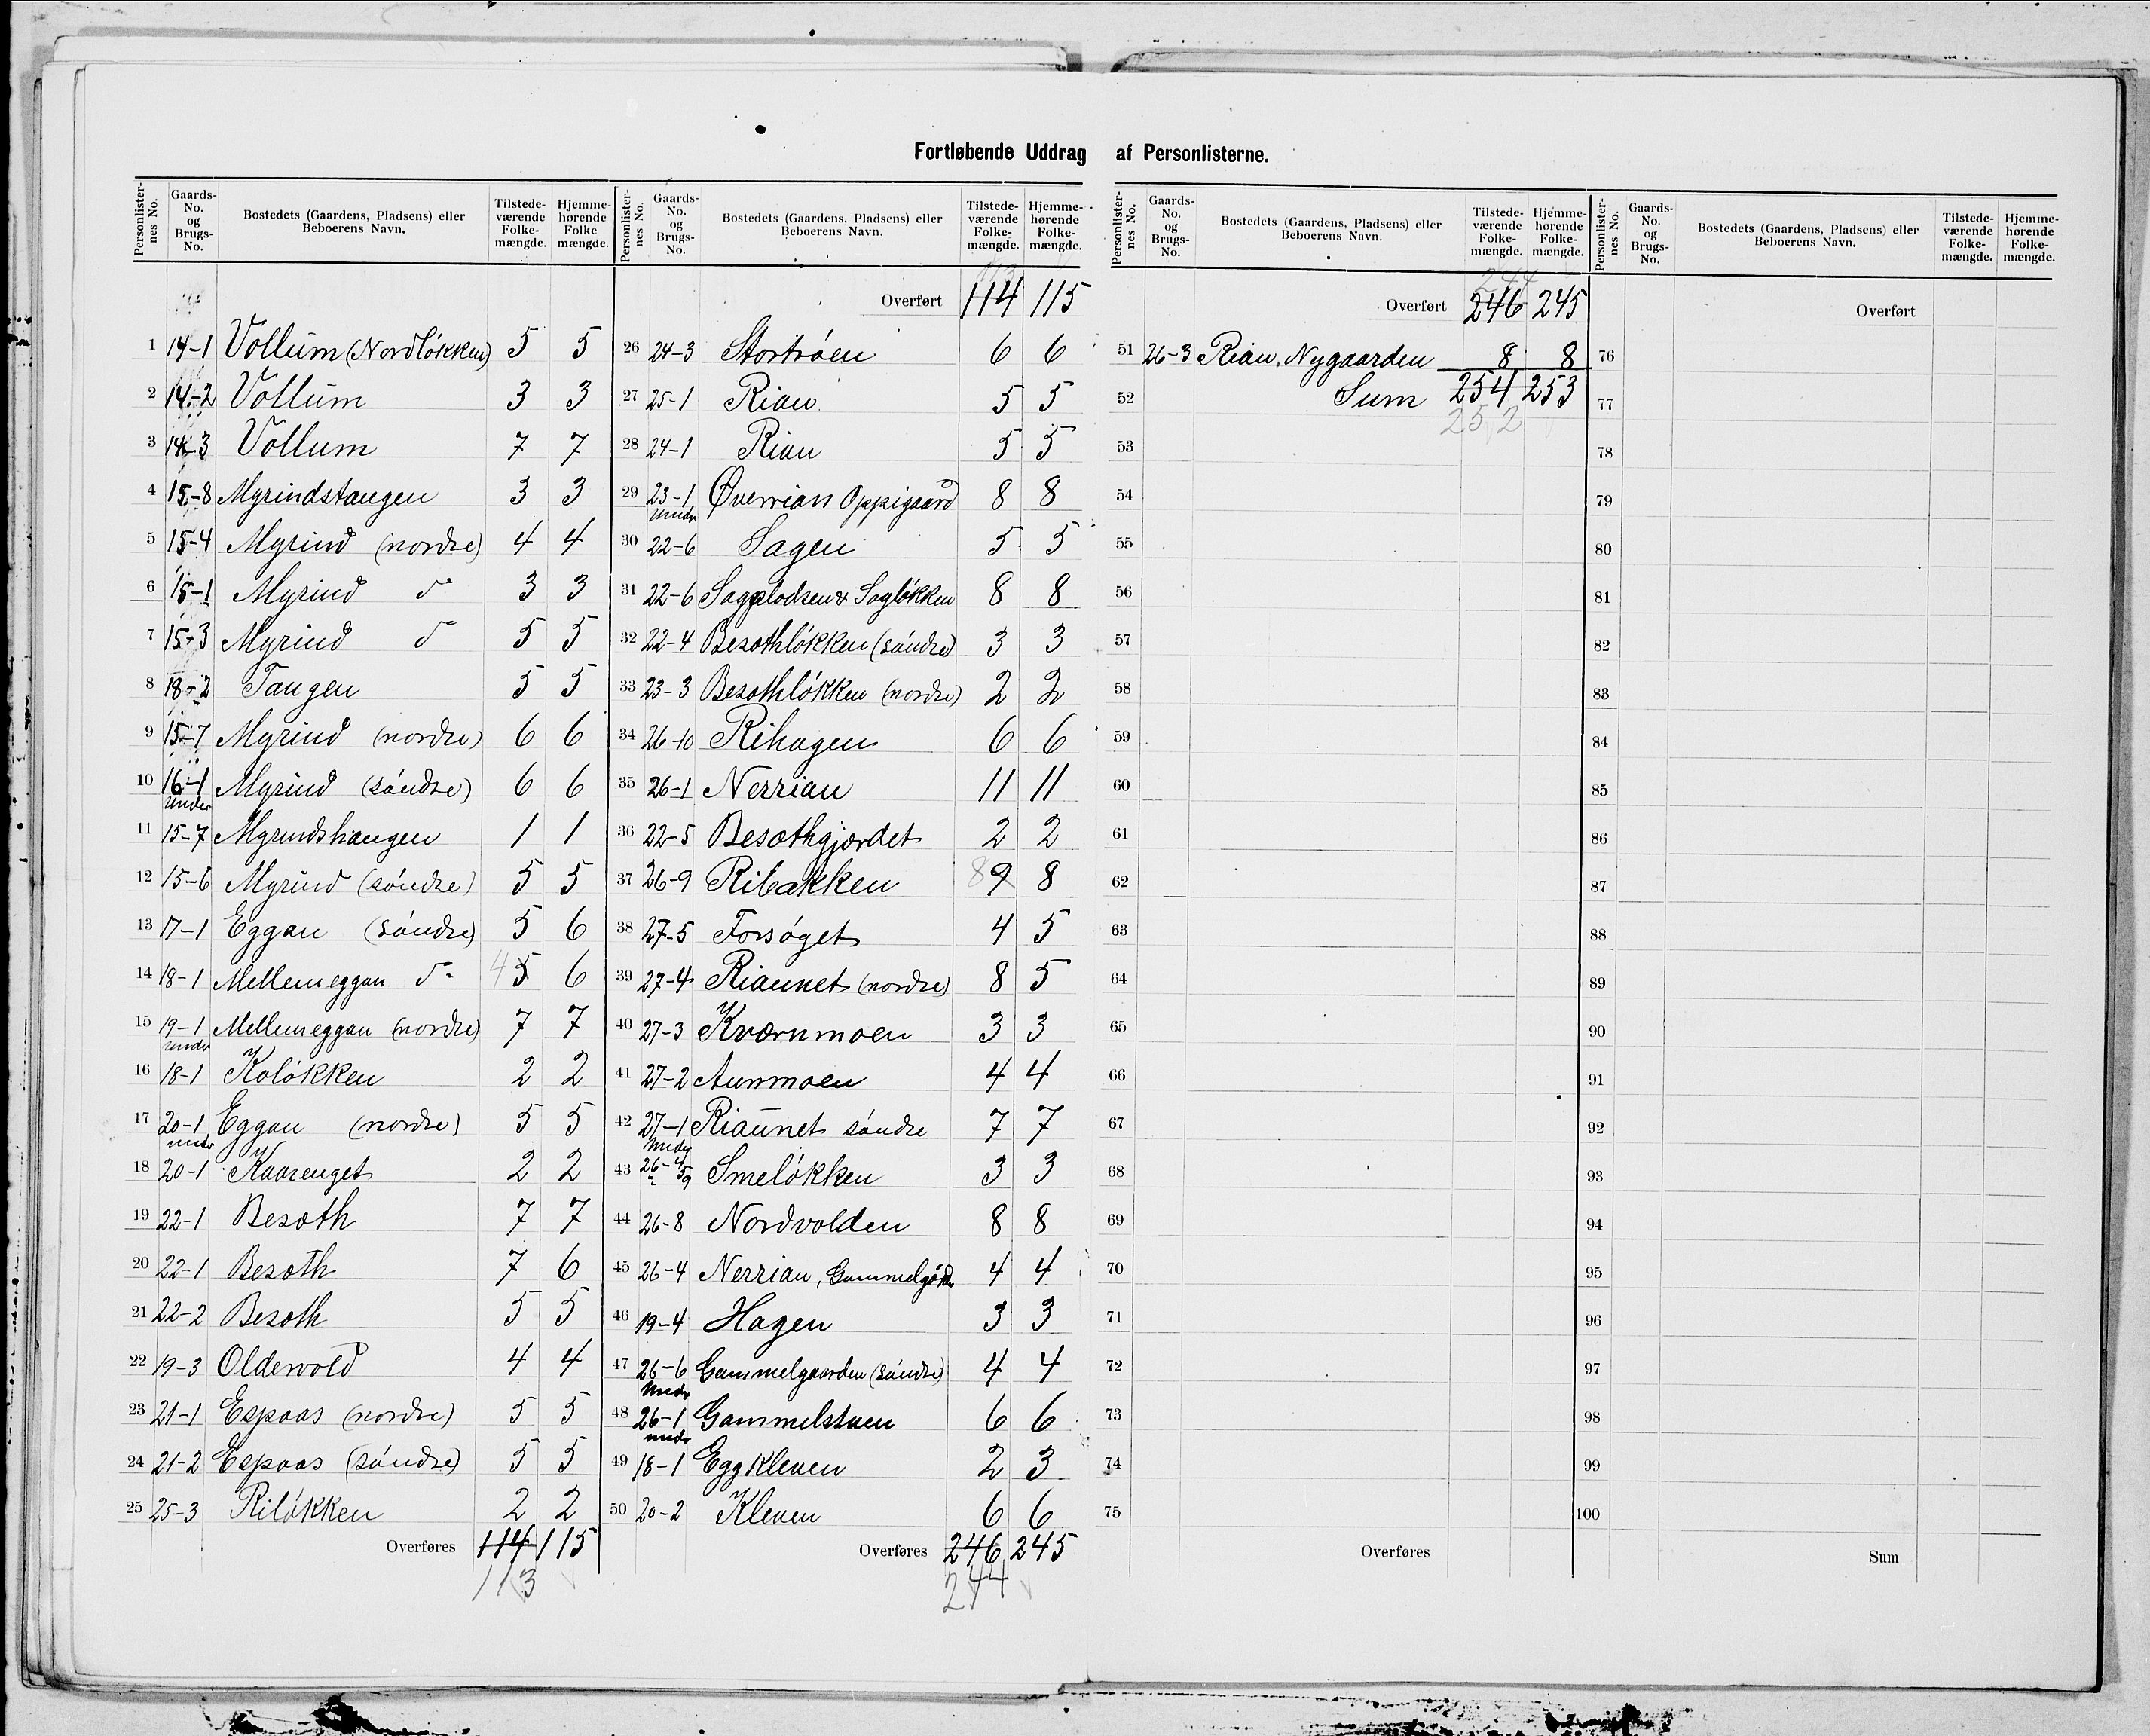 Fortløbende Uddrag af Personlisterne.
Personlisternes No. Gaards-No. og Brugs-No. Bostedets (Gaardens, Pladsens) eller Beboerens Navn. Tilstedeværende Folkemængde. Hjemmehørende Folkemængde.
1 14-1 Vollum (Nordløkken) 5 5
2 14-2 Vollum 3 3
3 14-3 Vollum 7 7
4 15-8 Myrindstangen 3 3
5 15-4 Myrind (nordre) 4 4
6 15-1 Myrind do 3 3
7 15-3 Myrind do 5 5
8 18-2 Tangen 5 5
9 15-7 Myrind (nordre) 6 6
10 16-1 Myrind (søndre) 6 6
under
11 15-7 Myrindshaugen 1 1
12 15-6 Myrind (søndre) 5 5
13 17-1 Eggan (søndre) 5 6
14 18-1 Mellemeggan do 4 5 6
15 19-1 Mellemeggan (nordre) 7 7
under
16 18-1 Koløkken 2 2
17 20-1 Eggan (nordre) 5 5
under
18 20-1 Kaarenget 2 2
19 22-1 Besoth 7 7
20 22-1 Besoth 7 6
21 22-2 Besoth 5 5
22 19-3 Oldervold 4 4
23 21-1 Espaas (nordre) 5 5
24 21-2 Espaas (søndre) 5 5
25 25-3 Riløkken 2 2
Overføres 114 115
113
Personlisternes No. Gaards-No. og Brugs-No. Bostedets (Gaardens, Pladsens) eller Beboerens Navn. Tilstedeværende Folkemængde. Hjemmehørende Folkemængde.
113
Overført 114 115
26 24-3 Stortrøen 6 6
27 25-1 Rian 5 5
28 24-1 Rian 5 5
29 23-1 Øverrian Oppigaard 8 8
under
30 22-6 Sagen 5 5
31 22-6 Sagplodsen & Sagløkken 8 8
32 22-4 Besothløkken (søndre) 3 3
33 23-3 Besothløkken (nordre) 2 2
34 26-10 Rihagen 6 6
35 26-1 Nerrian 11 11
36 22-5 Besothgjærdet 2 2
37 26-9 Ribakken 8 9 8
38 27-5 Forsøget 4 5
39 27-4 Riaunet (nordre) 8 5
40 27-3 Kværnmoen 3 3
41 27-2 Aunmoen 4 4
42 27-1 Riaunet søndre 7 7
under
43 26-4 5 9 Smeløkken 3 3
44 26-8 Nordvolden 8 8
45 26-4 Nerrian, 4 4
46 19-4 Hagen 3 3
47 26-6 Gammelgaarden (søndre) 4 4
under
48 26-1 Gammelstuen 6 6
under
49 18-1 Eggkleven 2 3
50 20-2 Kleven 6 6
Overføres 246 245
244
Personlisternes No. Gaards-No. og Brugs-No. Bostedets (Gaardens, Pladsens) eller Beboerens Navn. Tilstedeværende Folkemængde. Hjemmehørende Folkemængde.
244
Overført 246 245
51 26-3 Rian, Nygaarden 8 8
52 Sum 254 253
252
53
54
55
56
57
58
59
60
61
62
63
64
65
66
67
68
69
70
71
72
73
74
75
Overføres
Personlisternes No. Gaards-No. og Brugs-No. Bostedets (Gaardens, Pladsens) eller Beboerens Navn. Tilstedeværende Folkemængde. Hjemmehørende Folkemængde.
Overført
76
77
78
79
80
81
82
83
84
85
86
87
88
89
90
91
92
93
94
95
96
97
98
99
100
Sum